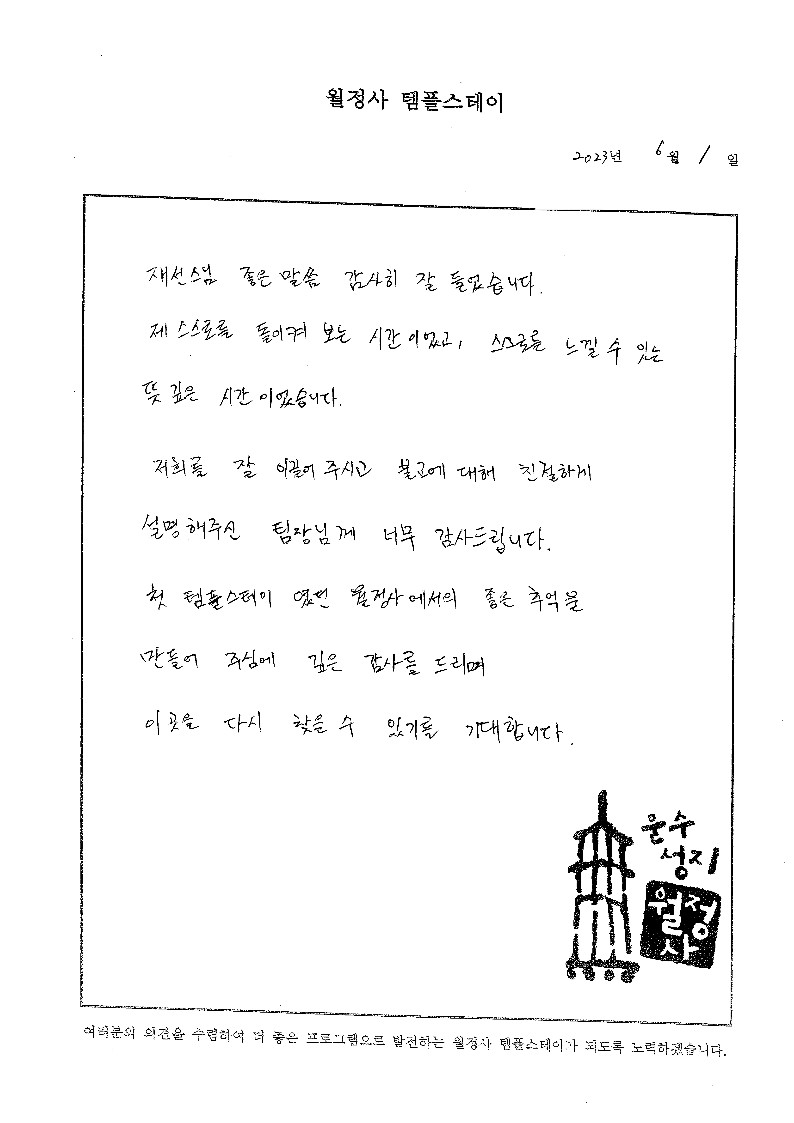 월정사 템플스테이
2023년 6월 1일
재선스님 좋은 말씀 감사히 잘 들었습니다.
제 스스로를 돌이켜 보는 시간이었고, 스스로를 느낄 수 있는
뜻 깊은 시간이었습니다.
저희를 잘 이끌어 주시고 불교에 대해 친절하게
설명해주신 팀장님께 너무 감사드립니다.
첫 템플스테이 였던 월정사에서의 좋은 추억을
만들어 주심에 깊은 감사를 드리며
이곳을 다시 찾을 수 있기를 기대합니다.
문수
성지
월정
사
여러분의 의견을 수렴하여 더 좋은 프로그램으로 발전하는 월정사 템플스테이가 되도록 노력하겠습니다.